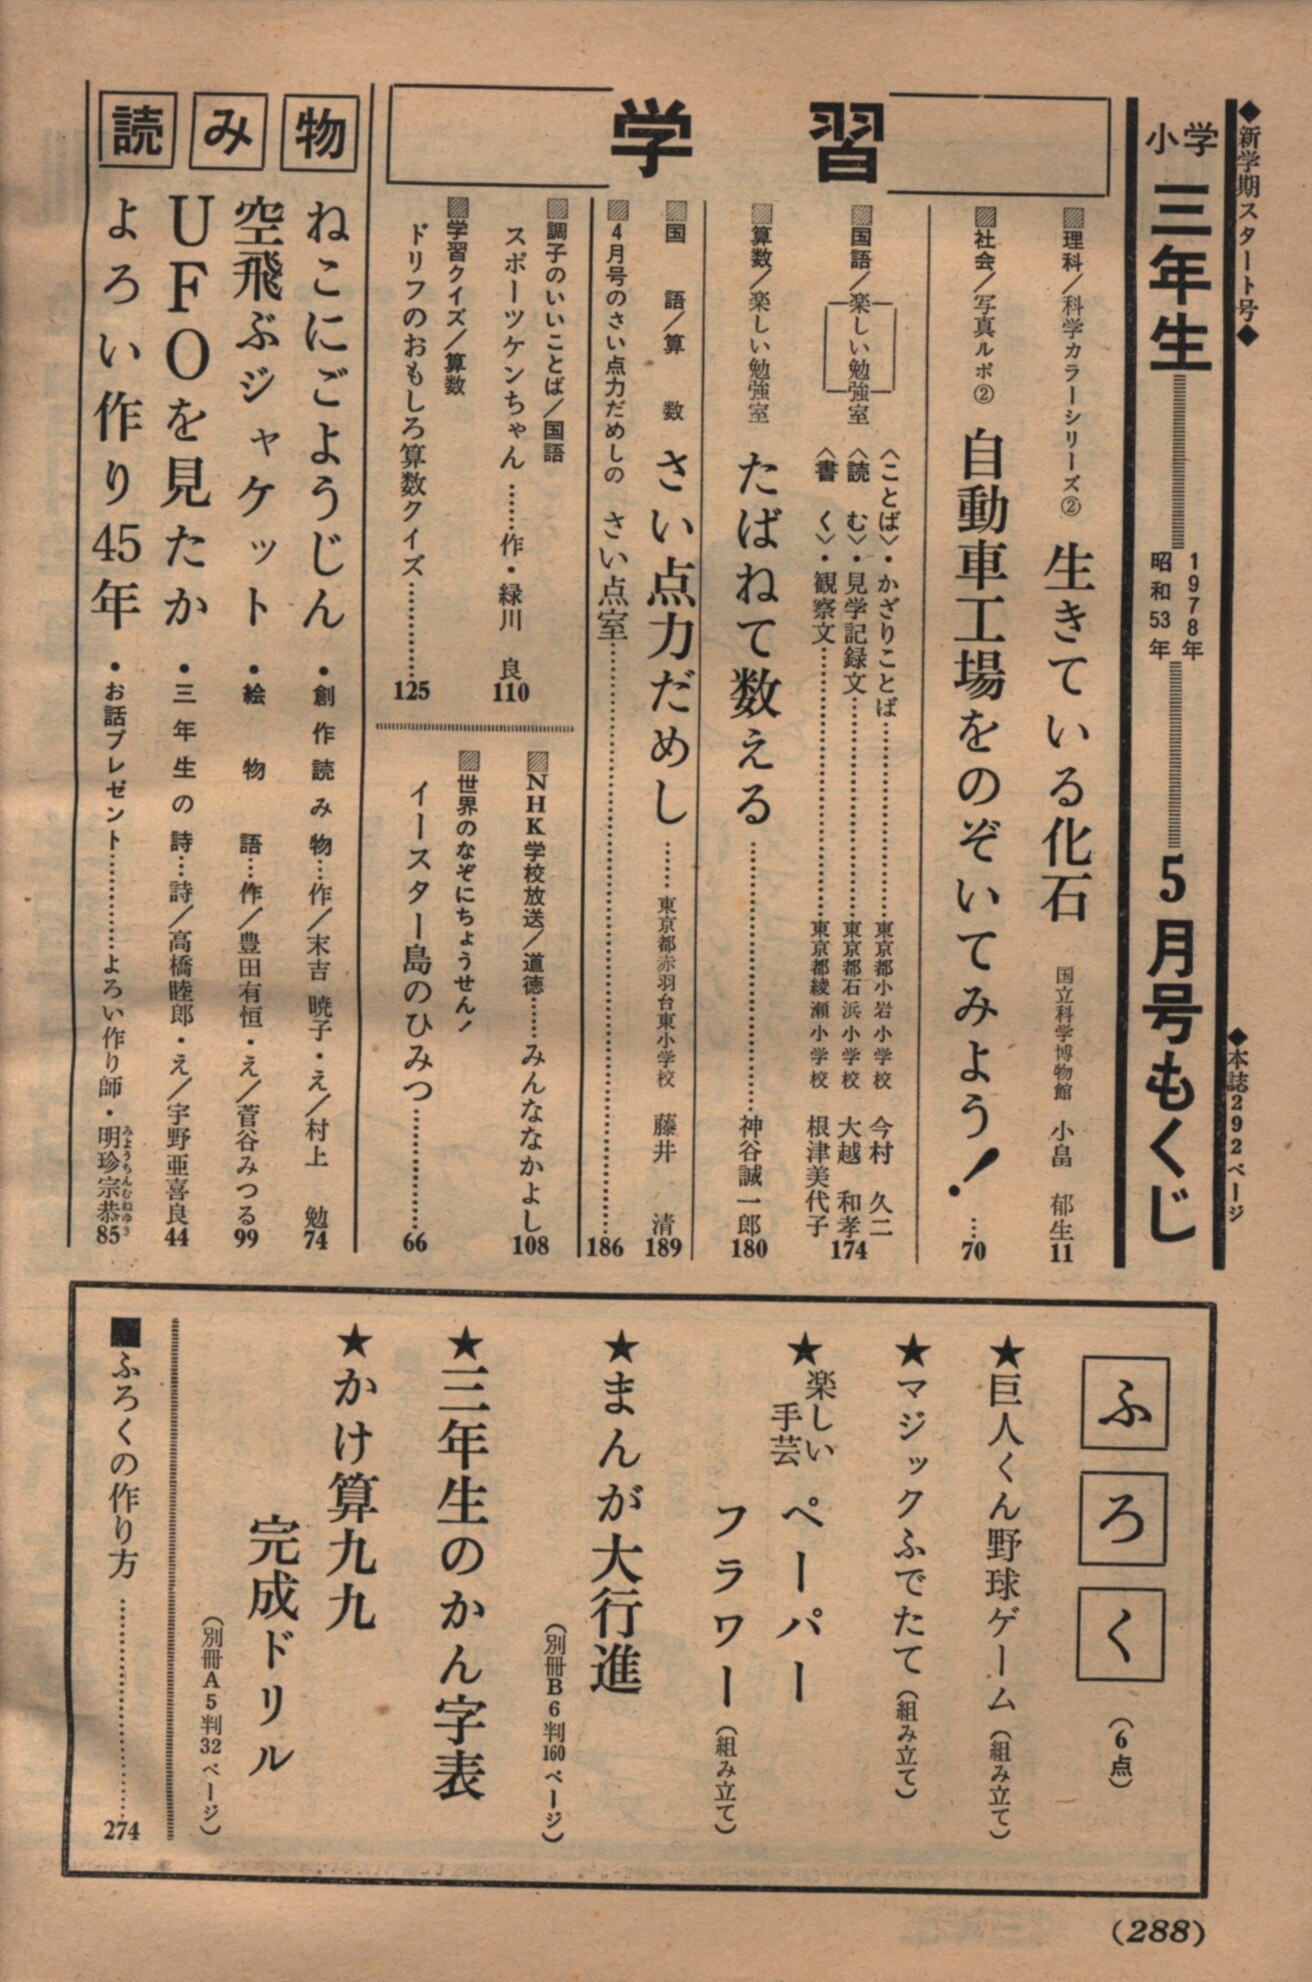 ◆新学期スタート号◆
◆本誌292ページ
小学三年生
1978年
昭和53年
5月号もくじ
学習
▨理科/科学カラーシリーズ② 生きている化石 国立科学博物館 小畠 郁生 11
▨社会/写真ルポ② 自動車工場をのぞいてみよう!… 70
▨国語/楽しい勉強室
〈ことば〉・かざりことば……東京都小岩小学校 今村 久二
〈読む〉・見学記録文……東京都石浜小学校 大越 和孝 174
〈書く〉・観察文……東京都綾瀬小学校 根津美代子
▨算数/楽しい勉強室 たばねて数える……神谷誠一郎 180
▨国語/算数 さい点力だめし……東京都赤羽台東小学校 藤井 清 189
▨4月号のさい点力だめしの さい点室……186
▨調子のいいことば/国語
スポーツケンちゃん……作・緑川 良 110
▨学習クイズ/算数
ドリフのおもしろ算数クイズ……125
▨NHK学校放送/道徳……みんななかよし 108
▨世界のなぞにちょうせん!
イースター島のひみつ……66
読み物
ねこにごようじん ・創作読み物…作/末吉 暁子・え/村上 勉 74
空飛ぶジャケット ・絵物語…作/豊田有恒・え/菅谷みつる 99
UFOを見たか ・三年生の詩…詩/高橋睦郎・え/宇野亜喜良 44
よろい作り45年 ・お話プレゼント……よろい作り師・明珍宗恭 85
みょうちんむねゆき
ふろく(6点)
★巨人くん野球ゲーム(組み立て)
★マジックふでたて(組み立て)
★楽しい手芸 ペーパー
フラワー(組み立て)
★まんが大行進
(別冊B6判160ページ)
★三年生のかん字表
★かけ算九九
完成ドリル
(別冊A5判32ページ)
■ふろくの作り方……274
(288)